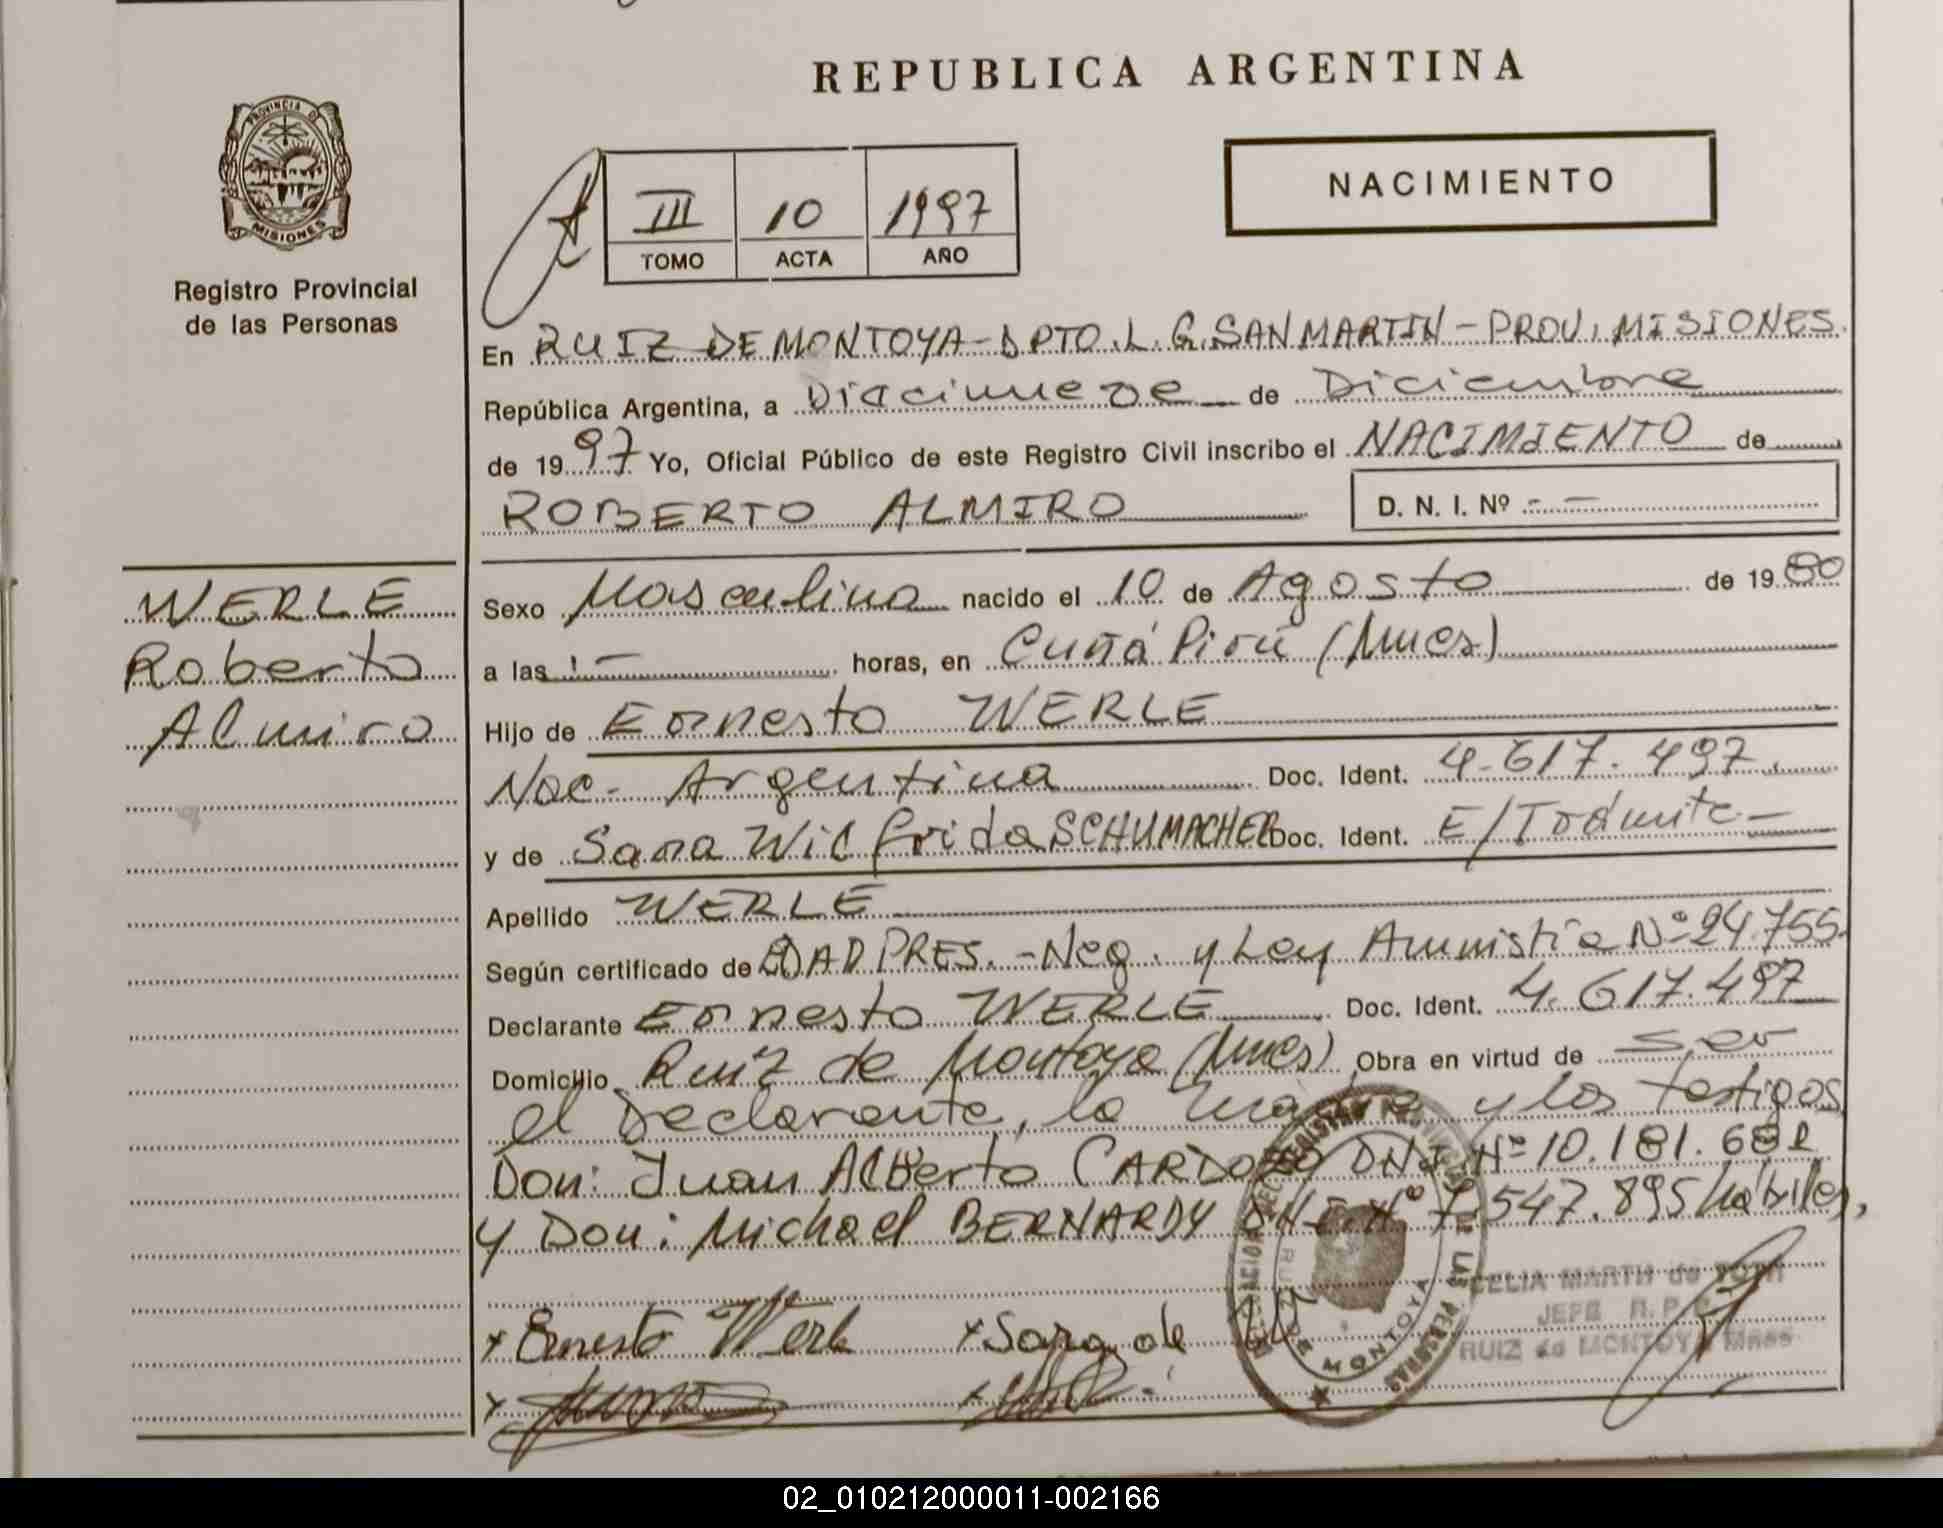 REPUBLICA ARGENTINA
PROVINCIA DE
MISIONES
Registro Provincial
de las Personas
III 10 1997
TOMO ACTA AÑO
NACIMIENTO
En RUIZ DE MONTOYA - DPTO. L. G. SAN MARTIN - PROV. MISIONES.
República Argentina, a Diecinueve de Diciembre
de 1997 Yo, Oficial Público de este Registro Civil inscribo el NACIMIENTO de
ROBERTO ALMIRO D. N. I. Nº - -
WERLE
Roberto
Almiro
Sexo Masculino nacido el 10 de Agosto de 1980
a las - horas, en Cuñá Pirú (Mnes)
Hijo de Ernesto WERLE
Nac. Argentina Doc. Ident. 4.617.497.
y de Sara Wilfrida SCHUMACHER Doc. Ident. E/Trámite -
Apellido WERLE
Según certificado de EDAD PRES. - Neg. y Ley Amnistía Nº 24.755.
Declarante Ernesto WERLE Doc. Ident. 4.617.497
Domicilio Ruiz de Montoya (Mnes) Obra en virtud de ser
el Declarante, la madre y los testigos
Don: Juan Alberto CARDOZO DNI. Nº 10.181.682
y Don: Michael BERNARDY DNI. Nº 7.547.895 hábiles,
CELIA MARTH de TOTH
JEFE R.P.P.
RUIZ de MONTOYA Mnes
x Ernesto Werle x Sara de
DE LAS PERSONAS
RUIZ DE MONTOYA
02_010212000011-002166